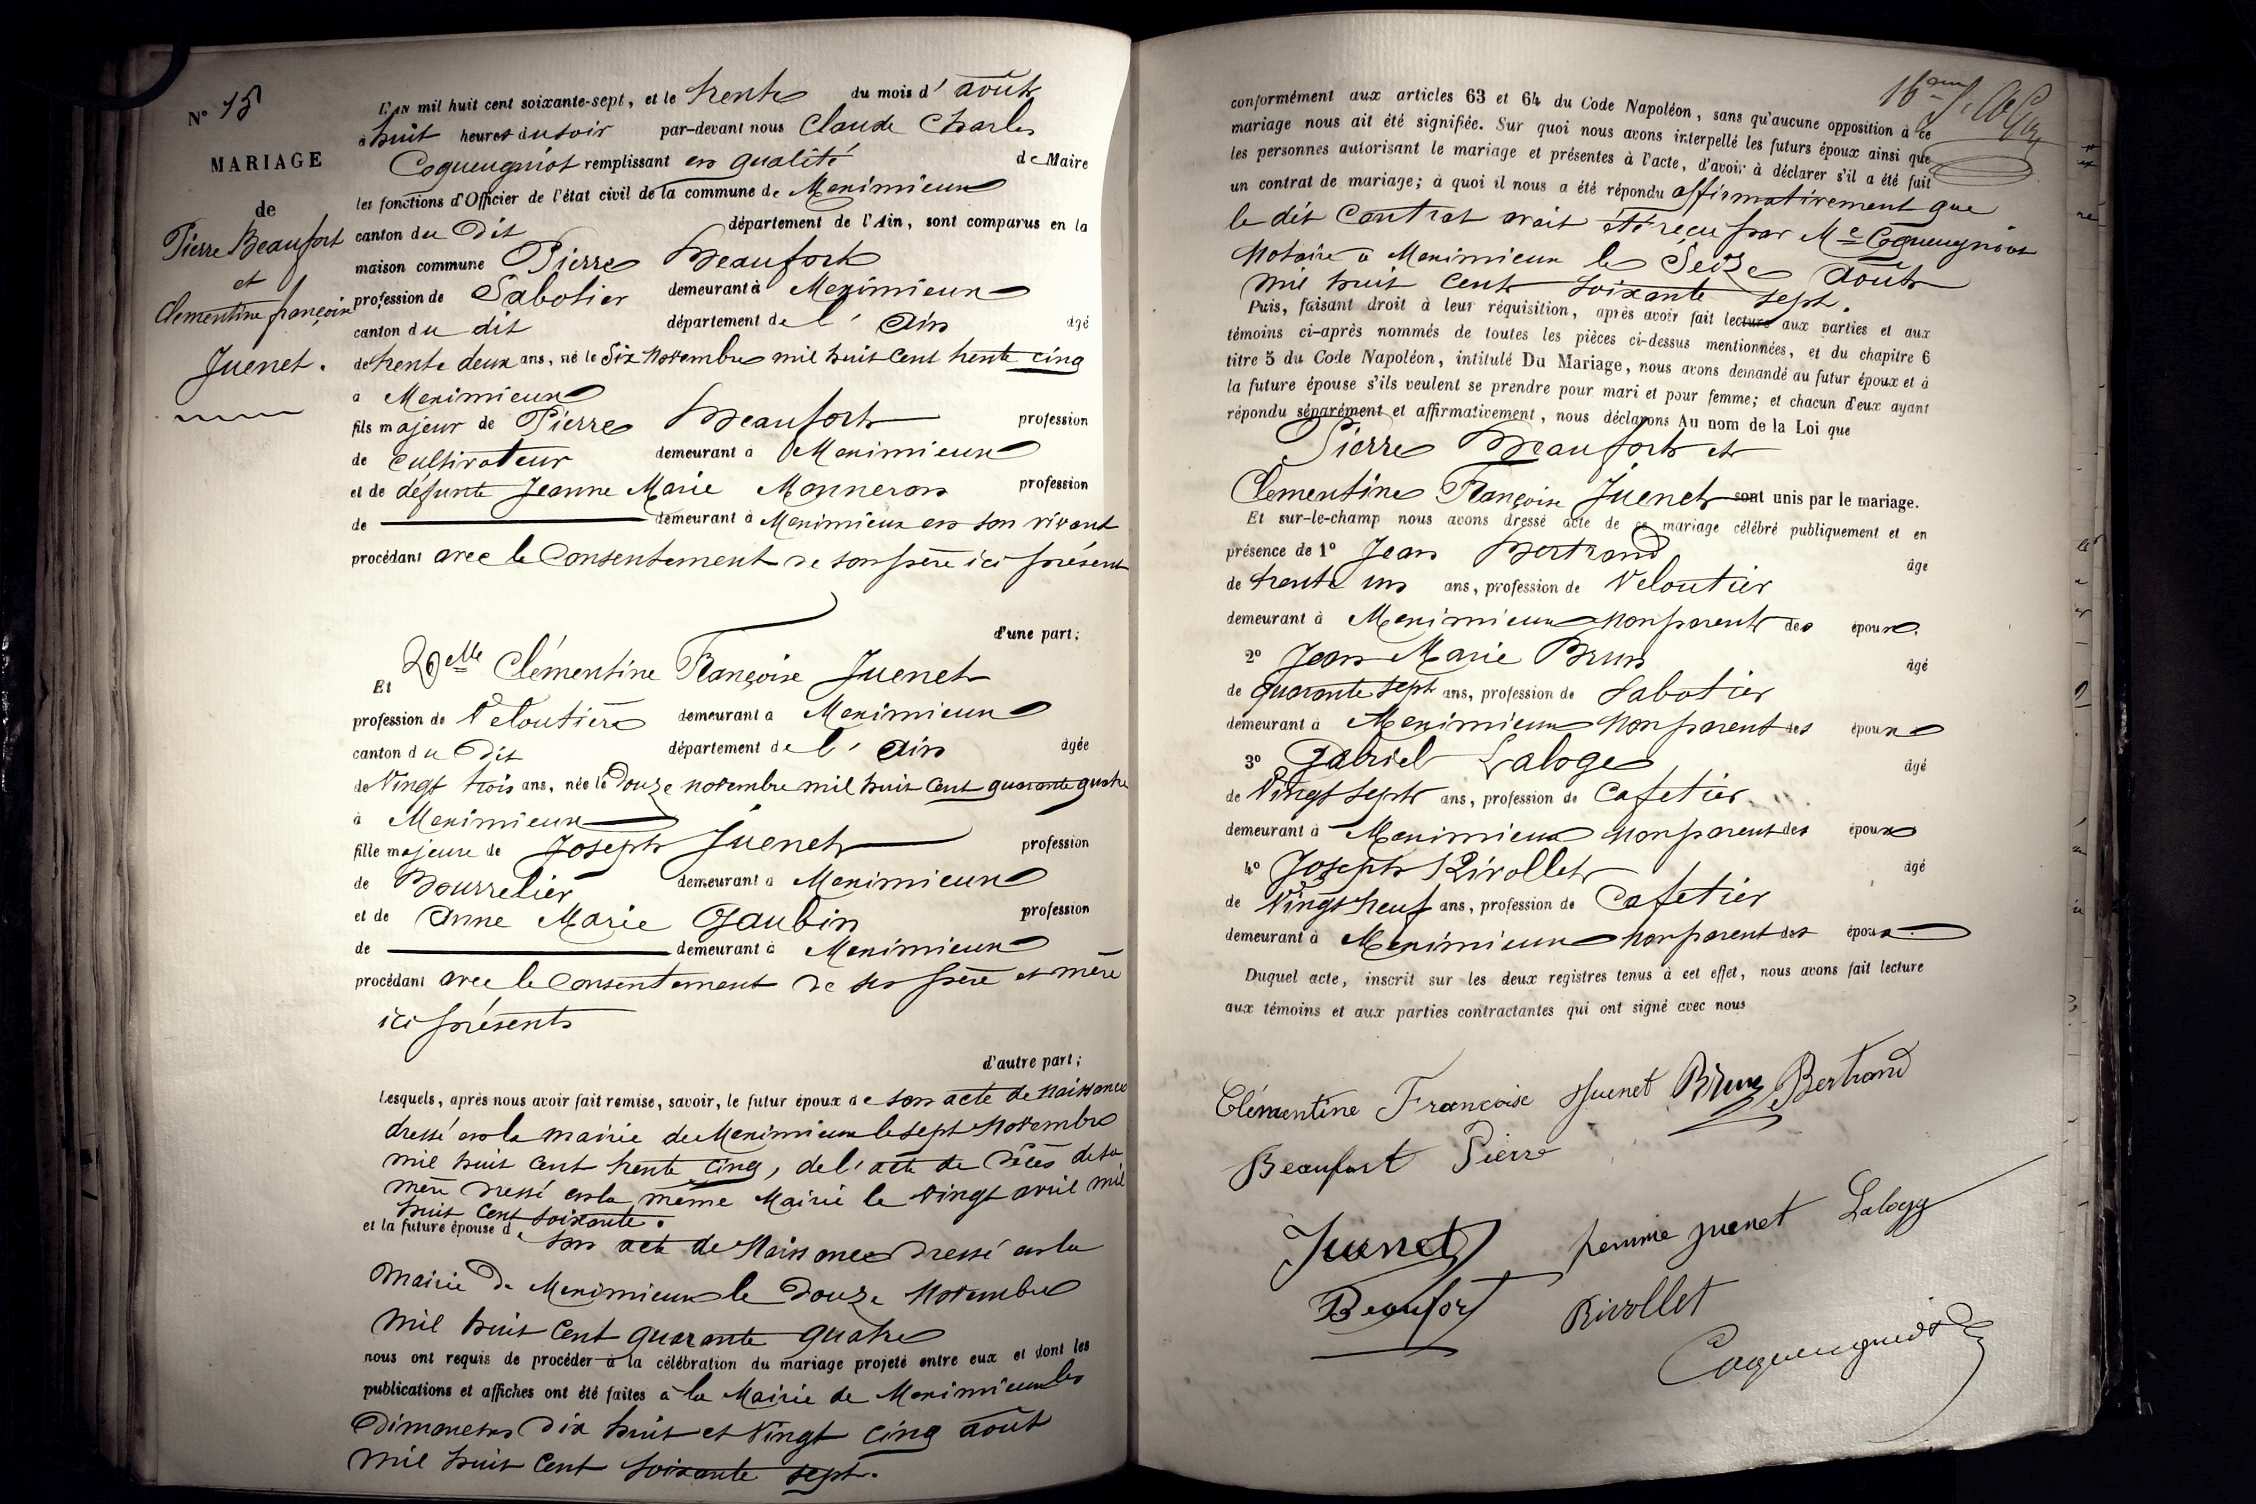 N° 15
MARIAGE
de
Pierre Beaufort
et
Clementine françoise
Juenet.
L'AN mil huit cent soixante-sept, et le trente du mois d'août
à huit heures du soir par-devant nous Claude Charles
Coqueugniot remplissant en qualité de Maire
les fonctions d'Officier de l'état civil de la commune de Meximieux
canton du dit département de l'Ain, sont comparus en la
maison commune Pierre Beaufort
profession de Sabotier demeurant à Meximieux
canton du dit département de l'Ain âgé
de trente deux ans, né le Six Novembre mil huit cent trente cinq
à Meximieux
fils majeur de Pierre Beaufort profession
de cultivateur demeurant à Meximieux
et de défunte Jeanne Marie Monneron profession
de demeurant à Meximieux en son vivant
procédant avec le Consentement de son père ici présent
d'une part;
Et Delle Clémentine Françoise Juenet
profession de Veloutière demeurant à Meximieux
canton du Dit département de l'Ain âgée
de Vingt trois ans, née le Douze novembre mil huit cent quarante quatre
à Meximieux
fille majeure de Joseph Juenet profession
de Bourrelier demeurant à Meximieux
et de Anne Marie Gaubin profession
de demeurant à Meximieux
procédant avec le Consentement de ses père et mère
ici présents
d'autre part;
Lesquels, après nous avoir fait remise, savoir, le futur époux de son acte de Naissance
dressé en la mairie de Meximieux le sept Novembre
mil huit cent trente cinq, de l'acte de Décès de sa
mère dressé en la même Mairie le Vingt avril mil
huit cent soixante.
et la future épouse de son acte de Naissance Dressé en la
Mairie de Meximieux le Douze Novembre
mil huit cent quarante quatre
nous ont requis de procéder à la célébration du mariage projeté entre eux et dont les
publications et affiches ont été faites à la Mairie de Meximieux les
Dimanches Dix huit et Vingt cinq août
mil huit cent soixante sept.
conformément aux articles 63 et 64 du Code Napoléon, sans qu'aucune opposition à ce
mariage nous ait été signifiée. Sur quoi nous avons interpellé les futurs époux ainsi que
les personnes autorisant le mariage et présentes à l'acte, d'avoir à déclarer s'il a été fait
un contrat de mariage; à quoi il nous a été répondu affirmativement que
le dit Contrat avait été reçu par Me Coqueugniot
Notaire à Meximieux le Seize Août
mil huit cent soixante sept.
Puis, faisant droit à leur réquisition, après avoir fait lecture aux parties et aux
témoins ci-après nommés de toutes les pièces ci-dessus mentionnées, et du chapitre 6
titre 5 du Code Napoléon, intitulé Du Mariage, nous avons demandé au futur époux et à
la future épouse s'ils veulent se prendre pour mari et pour femme; et chacun d'eux ayant
répondu séparément et affirmativement, nous déclarons Au nom de la Loi que
Pierre Beaufort et
Clementine Françoise Juenet sont unis par le mariage.
Et sur-le-champ nous avons dressé acte de ce mariage célébré publiquement et en
présence de 1° Jean Bertrand âgé
de trente un ans, profession de Veloutier
demeurant à Meximieux non parent des époux.
2° Jean Marie Brun âgé
de quarante sept ans, profession de Sabotier
demeurant à Meximieux non parent des époux
3° Gabriel Laloge âgé
de Vingt sept ans, profession de Cafetier
demeurant à Meximieux non parent des époux
4° Joseph Rivollet âgé
de Vingt neuf ans, profession de Cafetier
demeurant à Meximieux non parent des époux.
Duquel acte, inscrit sur les deux registres tenus à cet effet, nous avons fait lecture
aux témoins et aux parties contractantes qui ont signé avec nous
Clémentine Françoise Juenet Brun Bertrand
Beaufort Pierre
Juenet femme juenet Laloge
Beaufort Rivollet
Coqueugniot